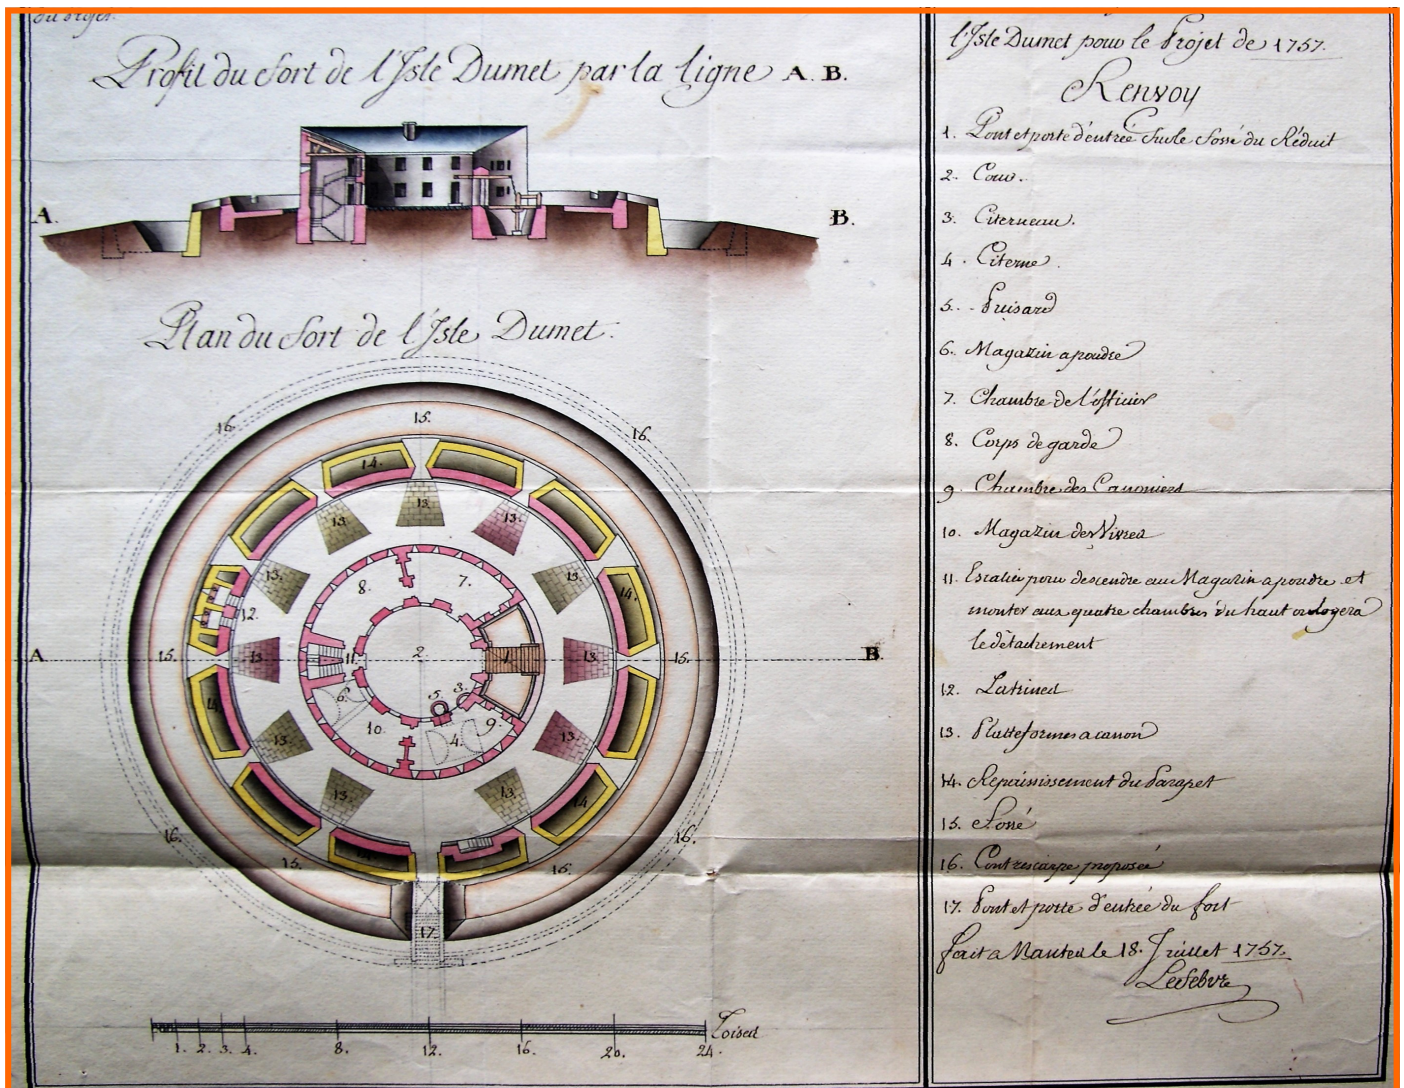 du Projet.
Profil du Fort de l'Isle Dumet par la ligne A. B.
A.
B.
Plan du Fort de l'Isle Dumet.
16.
15.
16.
14.
13.
13.
13.
8.
7.
13.
13.
14.
12.
A
15.
13.
11.
2.
1.
13.
15.
B.
6.
5.
3.
14.
10.
4.
9.
13.
13.
13.
13.
14.
16.
16.
15.
14.
15.
17.
Toises
1. 2. 3. 4. 8. 12. 16. 20. 24.
l'Isle Dumet pour le Projet de 1757.
Renvoy
1. Pont et porte d'entrée sur le Fossé du Réduit
2. Cour.
3. Citerneau.
4. Citerne.
5. Puisard
6. Magazin a poudre
7. Chambre de l'officier
8. Corps de garde
9. Chambre des Canoniers
10. Magazin des Vivres
11. Escalier pour descendre au Magazin a poudre et
monter aux quatre chambres du haut ou logera
le détachement
12. Latrines
13. Platteformes a canon
14. Repaississement du Parapet
15. Fossé
16. Contrescarpe proposée
17. Pont et porte d'entrée du fort
fait a Nantes le 18. Juillet 1757.
Lefebvre